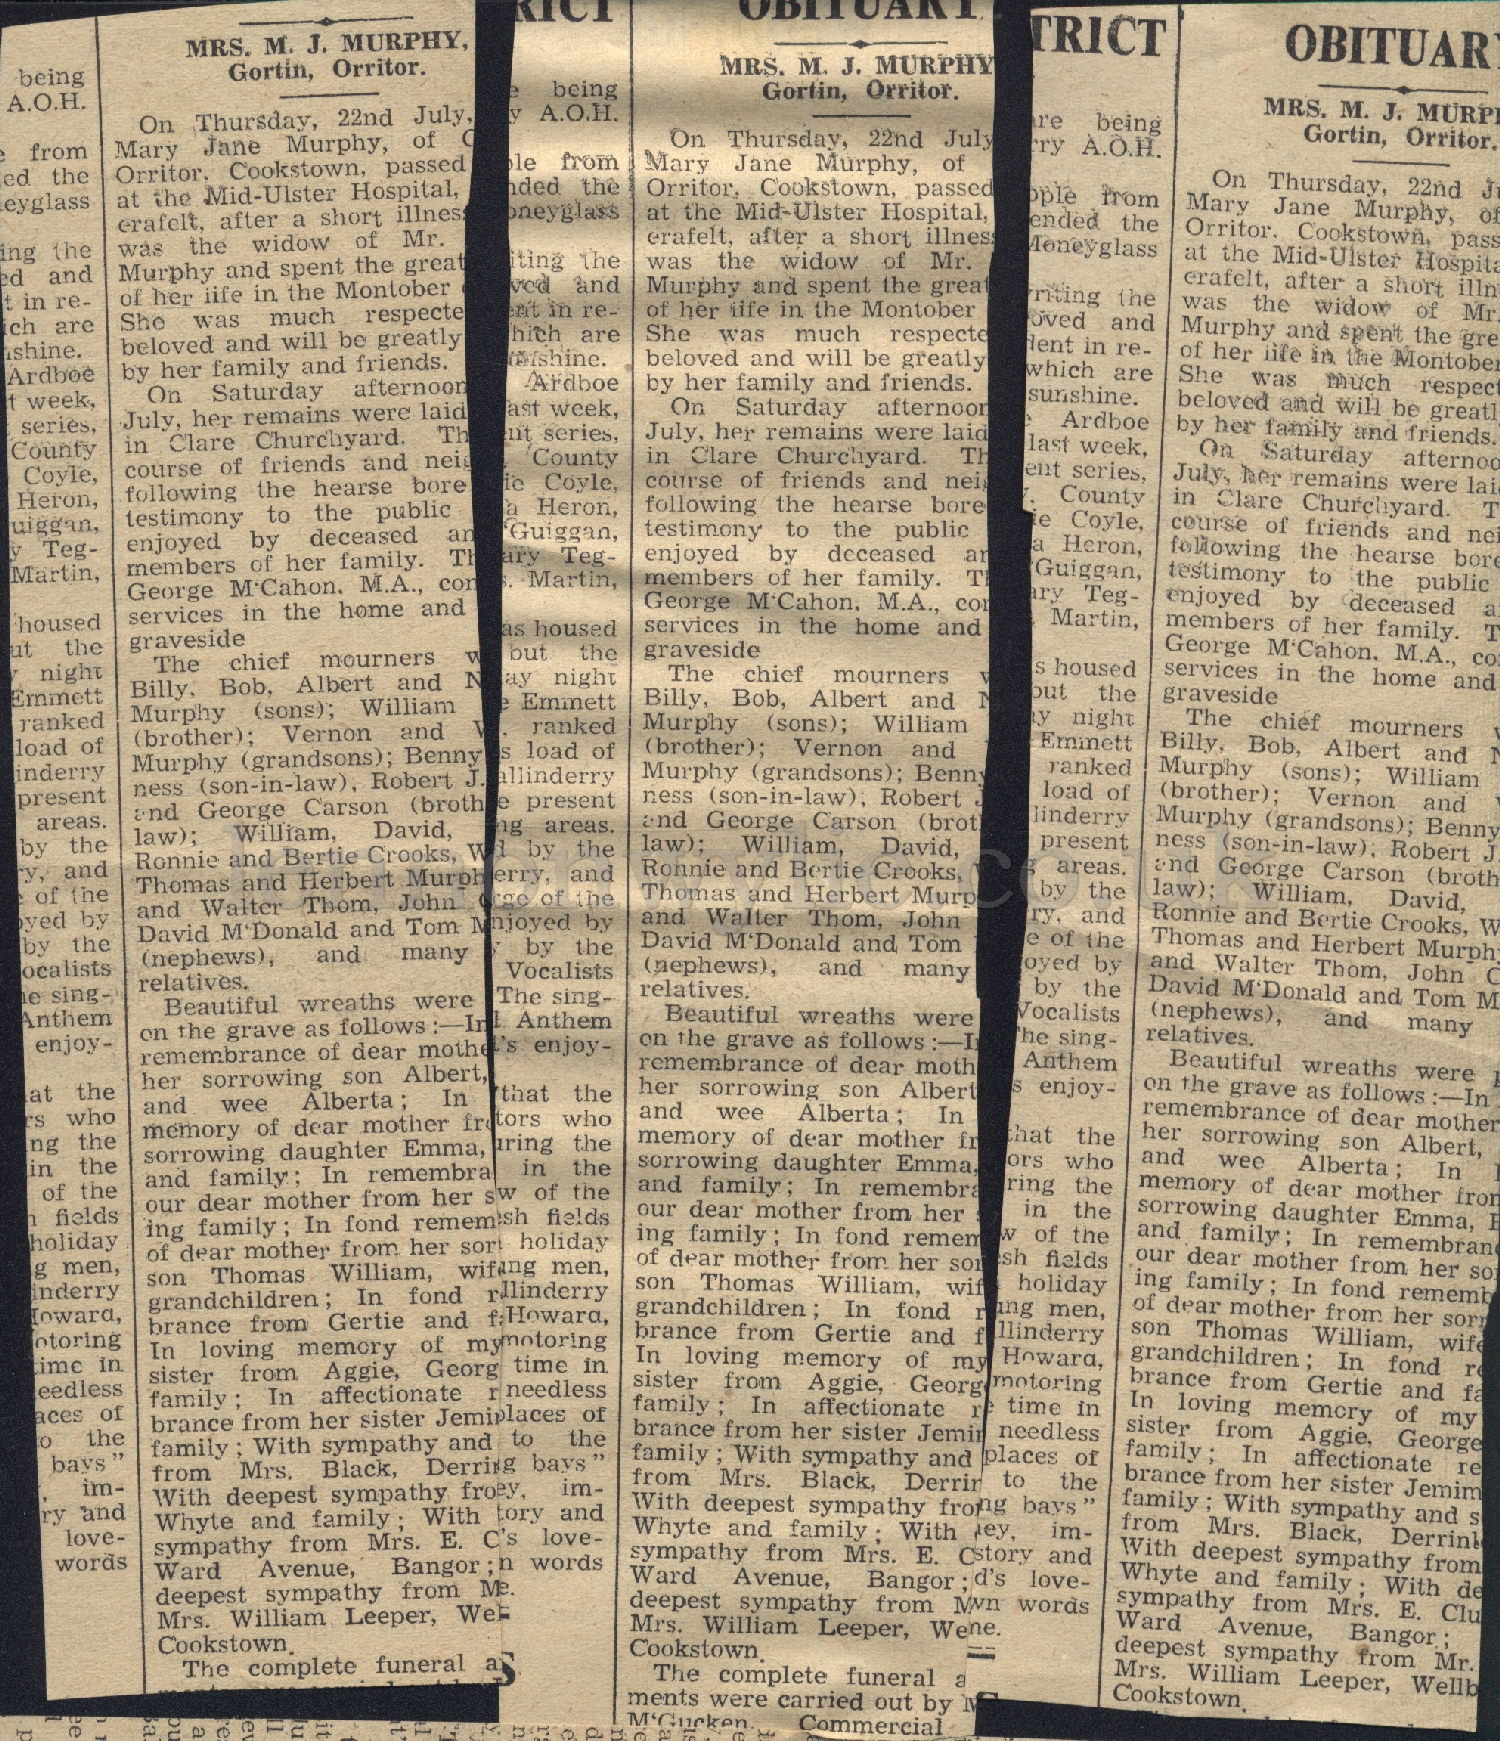 being
A.O.H.
from
ed the
eyglass
ing the
ed and
t in re-
ich are
shine.
Ardboe
t week,
series,
County
Coyle,
Heron,
uiggan,
y Teg-
Martin,
housed
ut the
night
Emmett
ranked
load of
inderry
present
areas.
by the
ry, and
of the
oyed by
by the
ocalists
he sing-
Anthem
enjoy-
at the
rs who
ng the
in the
of the
fields
holiday
g men,
inderry
Howard,
otoring
time in
needless
aces of
to the
bays"
, im-
ry and
love-
words
MRS. M. J. MURPHY,
Gortin, Orritor.
On Thursday, 22nd July,
Mary Jane Murphy, of
Orritor, Cookstown, passed
at the Mid-Ulster Hospital,
erafelt, after a short illness
was the widow of Mr.
Murphy and spent the great
of her life in the Montober
She was much respecte
beloved and will be greatly
by her family and friends.
On Saturday afternoon
July, her remains were laid
in Clare Churchyard. Th
course of friends and neig
following the hearse bore
testimony to the public
enjoyed by deceased an
members of her family. Th
George M'Cahon, M.A., con
services in the home and
graveside
The chief mourners w
Billy, Bob, Albert and N
Murphy (sons); William
(brother); Vernon and W
Murphy (grandsons); Benny
ness (son-in-law), Robert J.
and George Carson (broth
law); William, David,
Ronnie and Bertie Crooks, W
Thomas and Herbert Murph
and Walter Thom, John C
David M'Donald and Tom M
(nephews), and many
relatives.
Beautiful wreaths were
on the grave as follows:—In
remembrance of dear mothe
her sorrowing son Albert,
and wee Alberta; In
memory of dear mother fro
sorrowing daughter Emma,
and family; In remembra
our dear mother from her s
ing family; In fond remem
of dear mother from her sor
son Thomas William, wif
grandchildren; In fond r
brance from Gertie and f
In loving memory of my
sister from Aggie, Georg
family; In affectionate r
brance from her sister Jemi
family; With sympathy and
from Mrs. Black, Derri
With deepest sympathy fro
Whyte and family; With
sympathy from Mrs. E. C
Ward Avenue, Bangor;
deepest sympathy from M
Mrs. William Leeper, We
Cookstown.
The complete funeral a
RICT
being
y A.O.H.
ple from
nded the
oneyglass
iting the
ved and
ent in re-
hich are
nshine.
Ardboe
ast week,
nt series,
County
ie Coyle,
a Heron,
'Guiggan,
ary Teg-
s. Martin,
as housed
but the
ay night
Emmett
ranked
s load of
allinderry
e present
ng areas.
d by the
erry, and
rge of the
njoyed by
by the
Vocalists
The sing-
l Anthem
's enjoy-
that the
tors who
uring the
in the
w of the
sh fields
holiday
ing men,
llinderry
Howard,
motoring
time in
needless
places of
to the
g bays"
ey, im-
tory and
's love-
n words
e.
S
OBITUARY
MRS. M. J. MURPHY
Gortin, Orritor.
On Thursday, 22nd July
Mary Jane Murphy, of
Orritor, Cookstown, passed
at the Mid-Ulster Hospital,
erafelt, after a short illness
was the widow of Mr.
Murphy and spent the great
of her life in the Montober
She was much respecte
beloved and will be greatly
by her family and friends.
On Saturday afternoon
July, her remains were laid
in Clare Churchyard. Th
course of friends and neig
following the hearse bore
testimony to the public
enjoyed by deceased an
members of her family. Th
George M'Cahon, M.A., con
services in the home and
graveside
The chief mourners w
Billy, Bob, Albert and N
Murphy (sons); William
(brother); Vernon and
Murphy (grandsons); Benny
ness (son-in-law), Robert J
and George Carson (brot
law); William, David,
Ronnie and Bertie Crooks,
Thomas and Herbert Murp
and Walter Thom, John
David M'Donald and Tom
(nephews), and many
relatives.
Beautiful wreaths were
on the grave as follows:—In
remembrance of dear moth
her sorrowing son Albert
and wee Alberta; In
memory of dear mother fr
sorrowing daughter Emma,
and family; In remembra
our dear mother from her s
ing family; In fond remem
of dear mother from her sor
son Thomas William, wif
grandchildren; In fond r
brance from Gertie and f
In loving memory of my
sister from Aggie, Georg
family; In affectionate re
brance from her sister Jemim
family; With sympathy and
from Mrs. Black, Derrin
With deepest sympathy fro
Whyte and family; With
sympathy from Mrs. E. C
Ward Avenue, Bangor;
deepest sympathy from M
Mrs. William Leeper, We
Cookstown.
The complete funeral a
ments were carried out by M
M'Gucken, Commercial
TRICT
are being
rry A.O.H.
ople from
ended the
Moneyglass
riting the
oved and
dent in re-
which are
sunshine.
Ardboe
last week,
ent series,
County
ie Coyle,
a Heron,
'Guiggan,
ary Teg-
Martin,
s housed
but the
ay night
Emmett
ranked
load of
linderry
present
g areas.
by the
ry, and
e of the
oyed by
by the
Vocalists
The sing-
Anthem
s enjoy-
that the
ors who
ring the
in the
w of the
sh fields
holiday
ing men,
llinderry
Howard,
motoring
e time in
needless
places of
to the
ng bays"
ley, im-
story and
d's love-
wn words
ne.
OBITUARY
MRS. M. J. MURPH
Gortin, Orritor.
On Thursday, 22nd Ju
Mary Jane Murphy, of
Orritor, Cookstown, pass
at the Mid-Ulster Hospita
erafelt, after a short illn
was the widow of Mr.
Murphy and spent the gre
of her life in the Montober
She was much respect
beloved and will be greatl
by her family and friends.
On Saturday afternoo
July, her remains were laid
in Clare Churchyard. T
course of friends and nei
following the hearse bore
testimony to the public
enjoyed by deceased a
members of her family. T
George M'Cahon, M.A., co
services in the home and
graveside
The chief mourners w
Billy, Bob, Albert and N
Murphy (sons); William
(brother); Vernon and
Murphy (grandsons); Benny
ness (son-in-law), Robert J.
and George Carson (broth
law); William, David,
Ronnie and Bertie Crooks, W
Thomas and Herbert Murphy
and Walter Thom, John C
David M'Donald and Tom M
(nephews), and many
relatives.
Beautiful wreaths were
on the grave as follows:—In
remembrance of dear mother
her sorrowing son Albert,
and wee Alberta; In
memory of dear mother from
sorrowing daughter Emma,
and family; In remembran
our dear mother from her so
ing family; In fond rememb
of dear mother from her sorr
son Thomas William, wife
grandchildren; In fond re
brance from Gertie and fa
In loving memory of my
sister from Aggie, George
family; In affectionate re
brance from her sister Jemim
family; With sympathy and s
from Mrs. Black, Derrinl
With deepest sympathy from
Whyte and family; With de
sympathy from Mrs. E. Clu
Ward Avenue, Bangor;
deepest sympathy from Mr.
Mrs. William Leeper, Wellb
Cookstown.